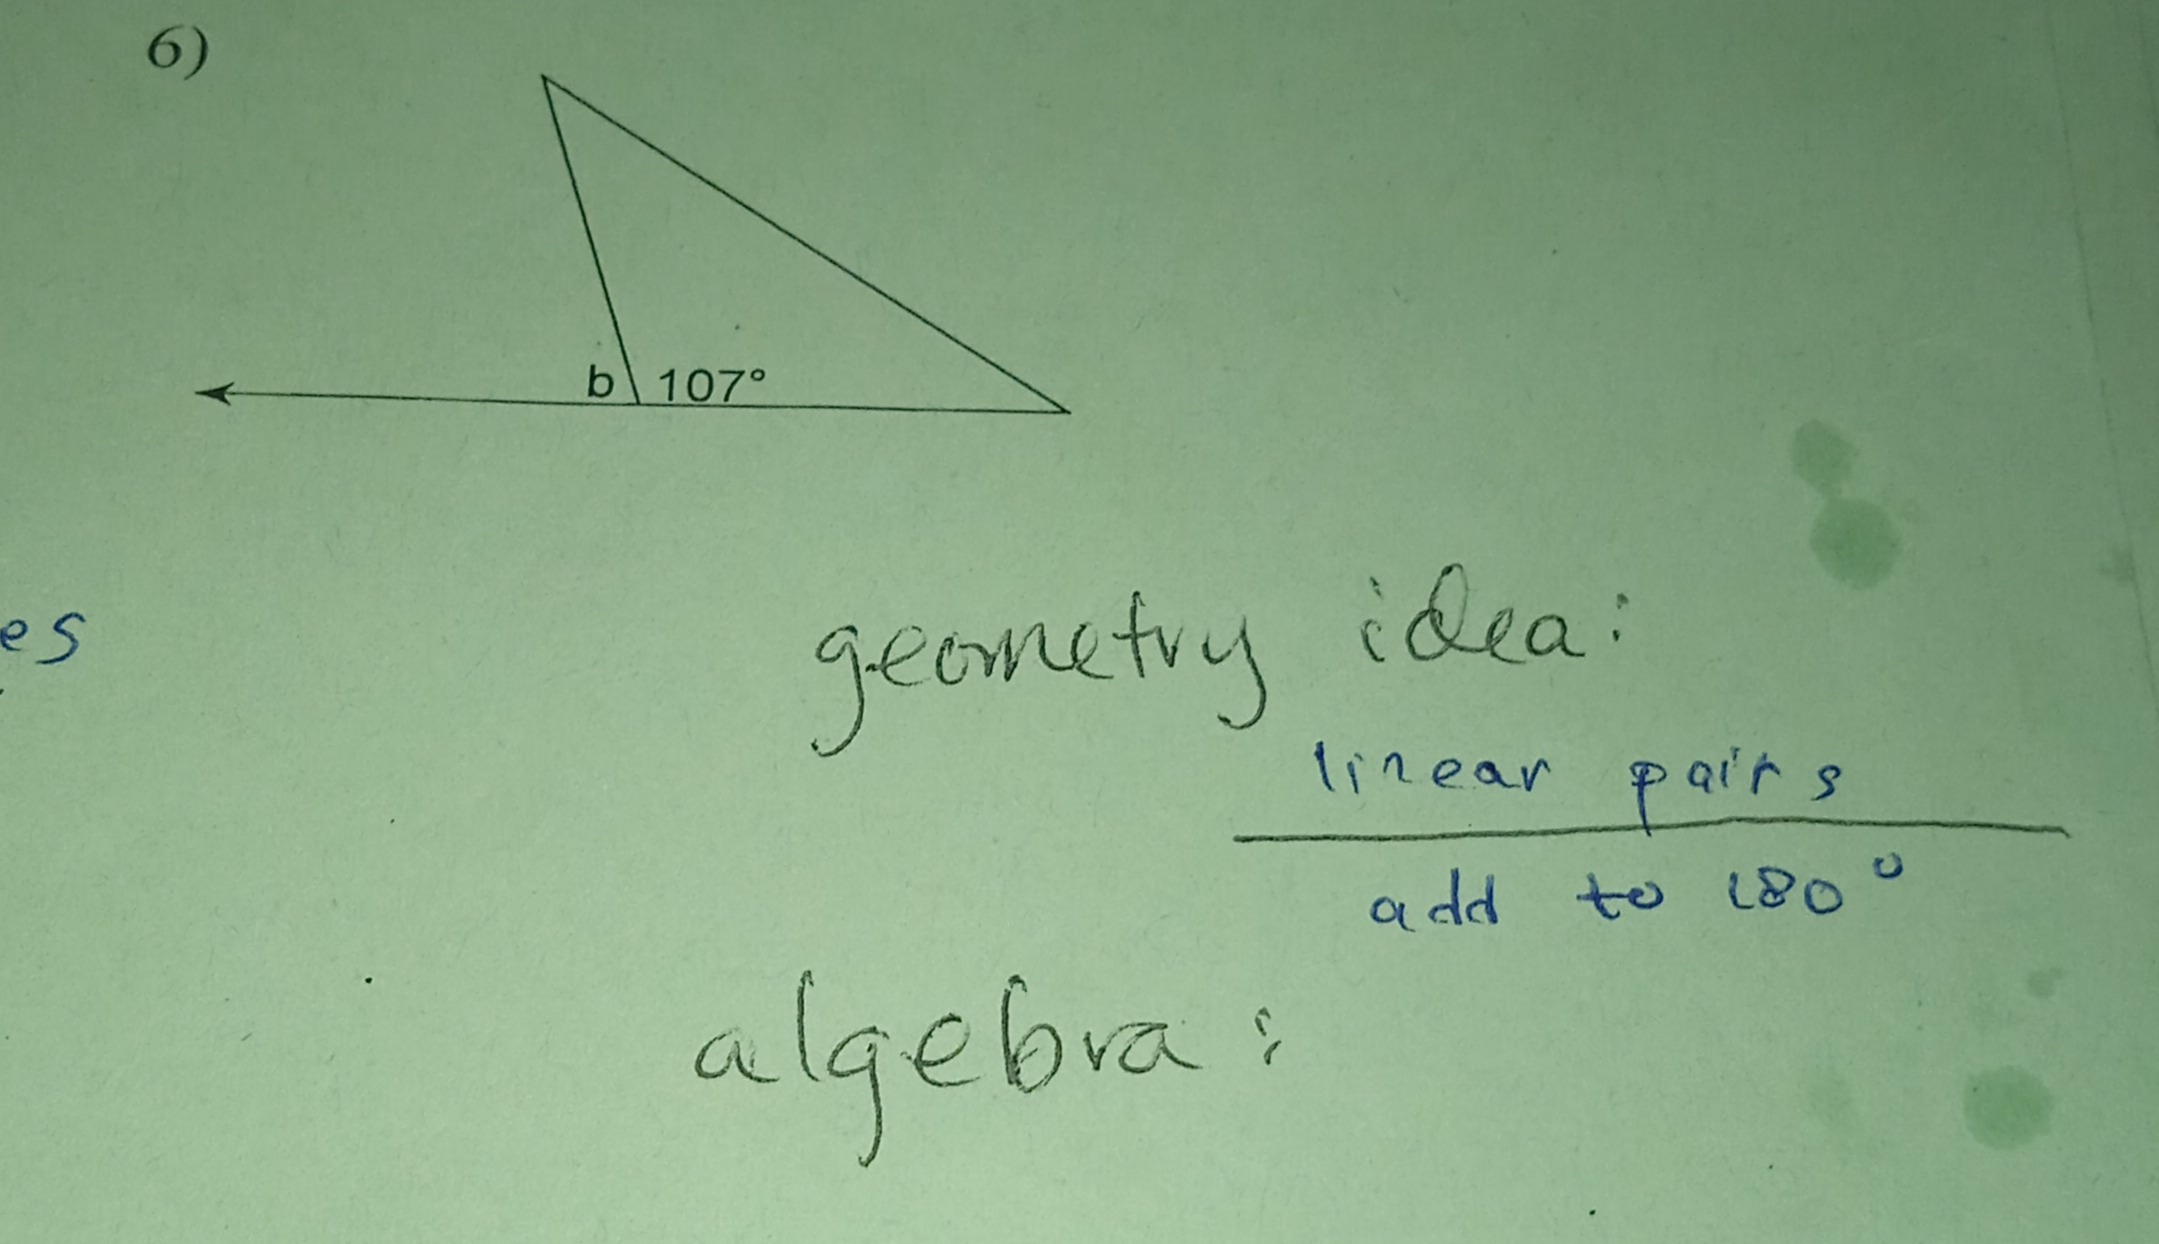 6)
b 107°
geometry idea:
es
linear pairs
add to 180°
algebra: